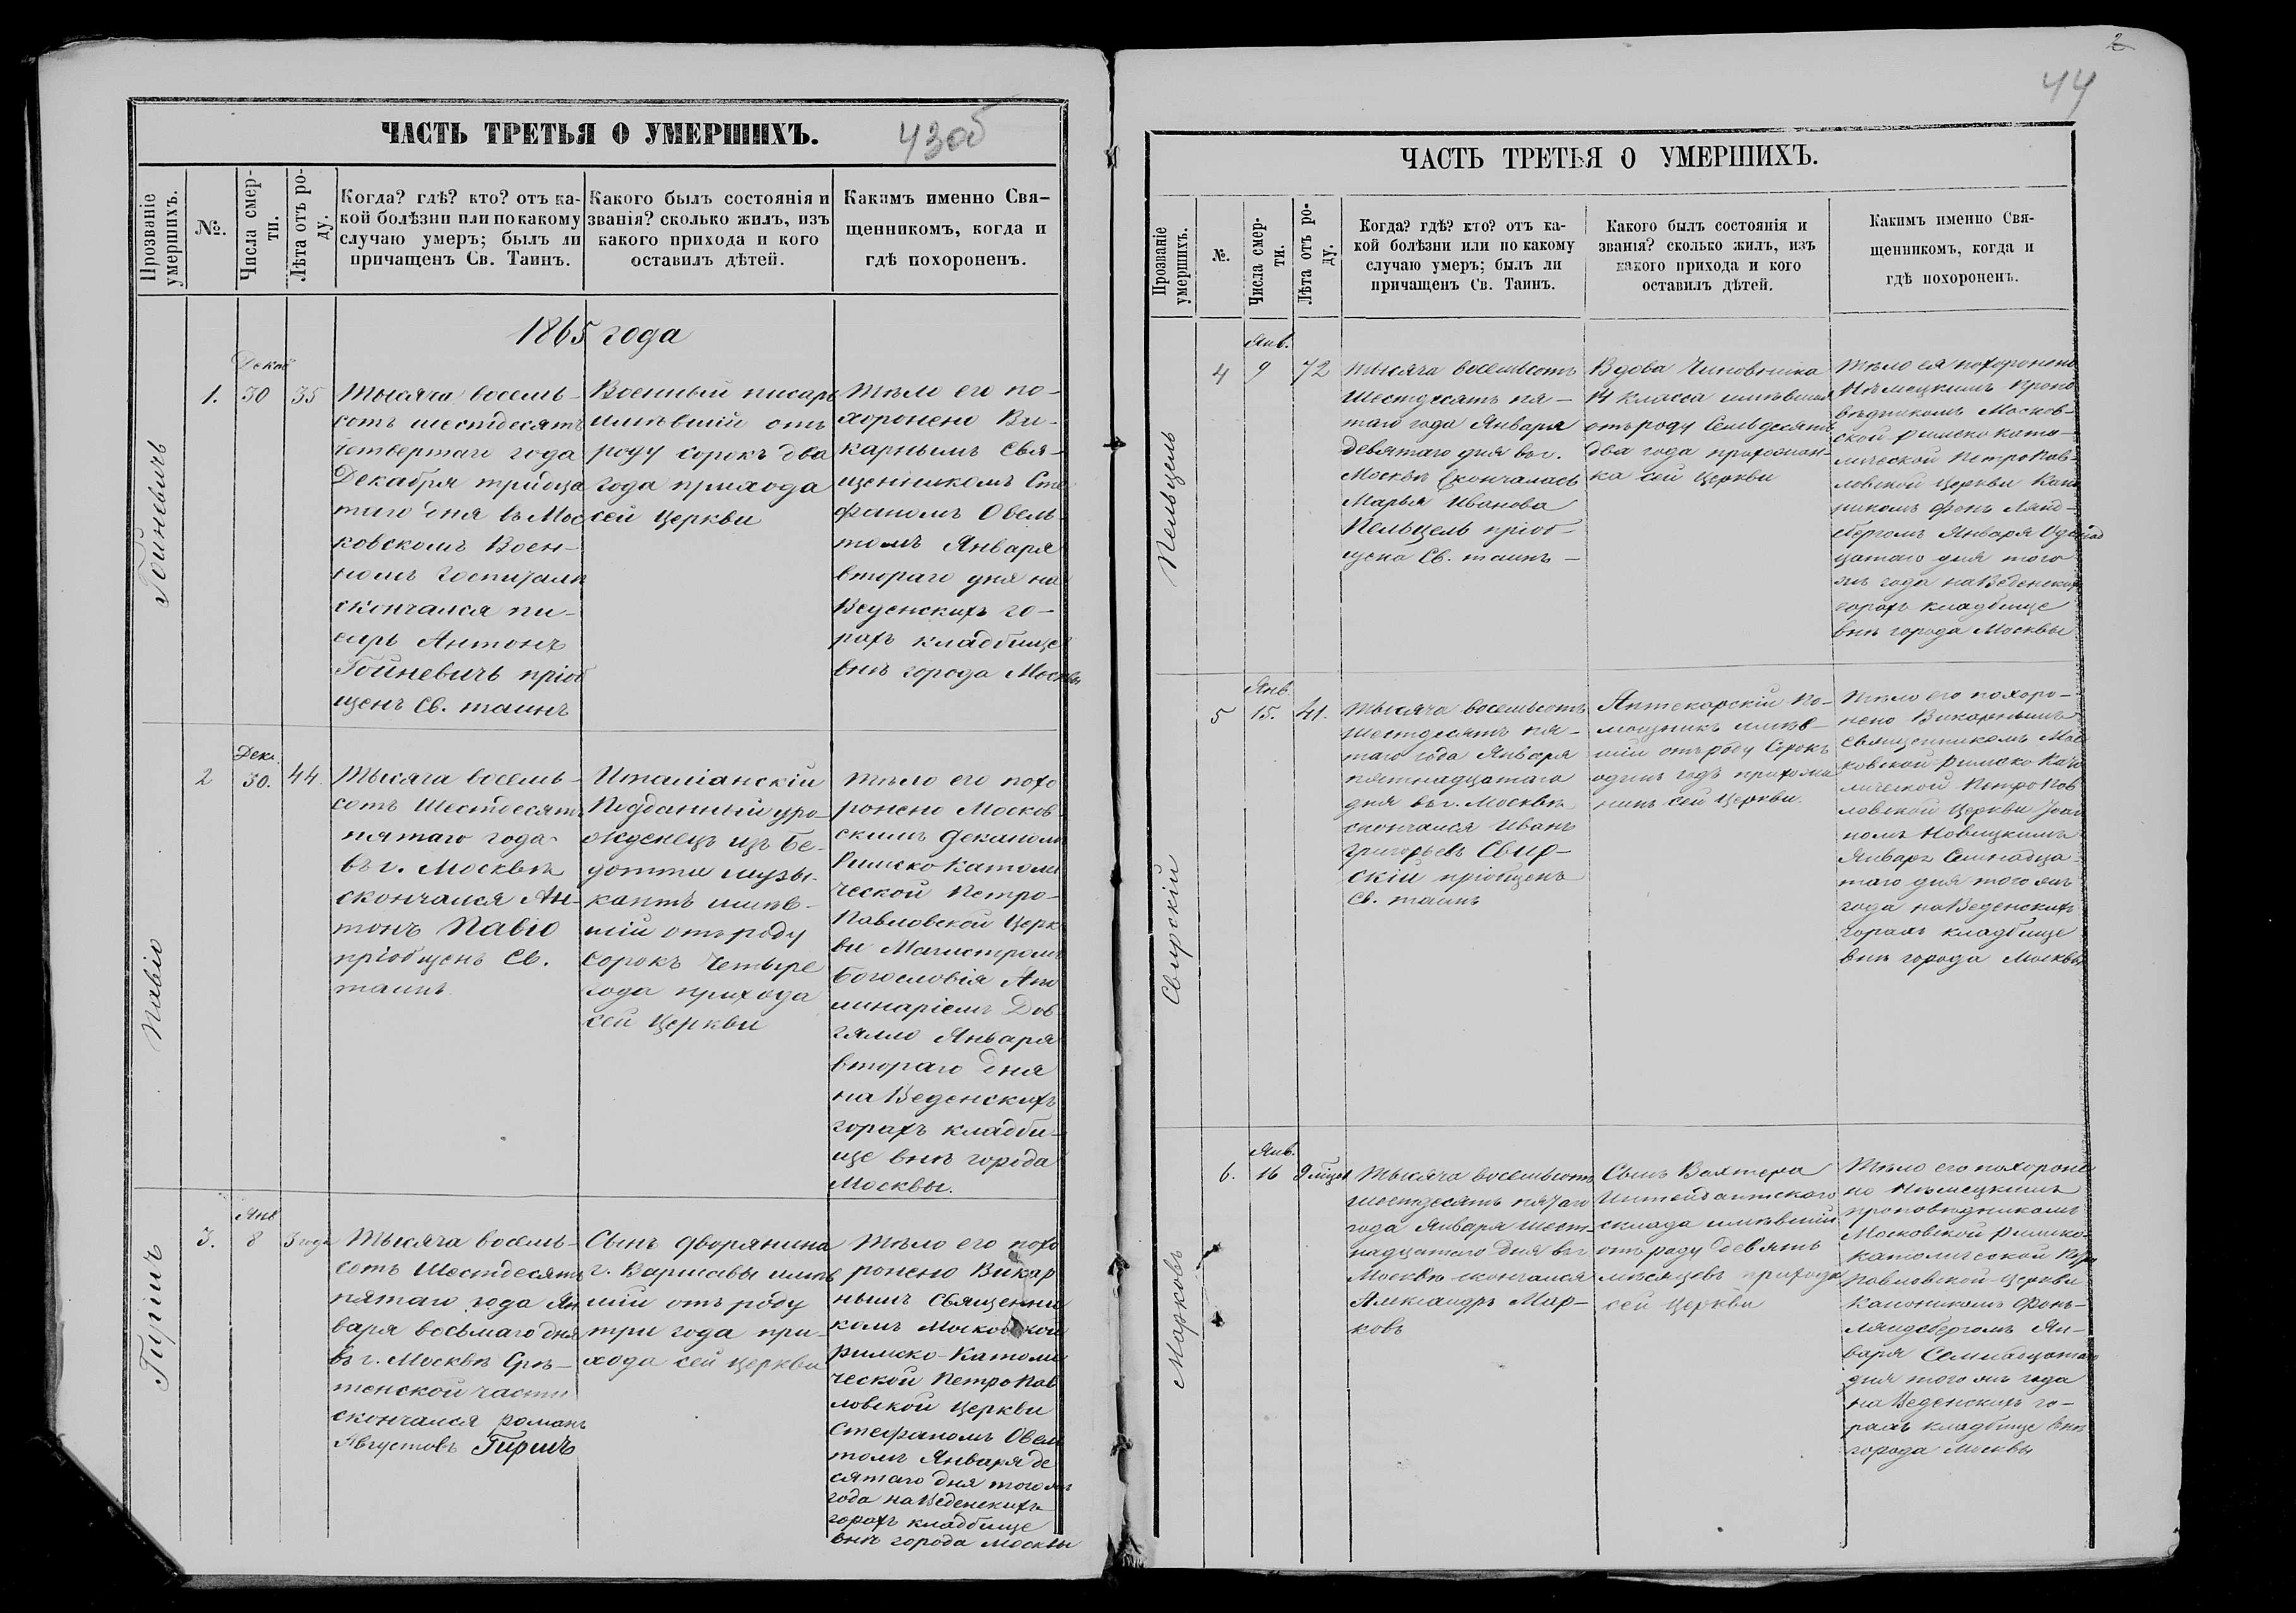 ЧАСТЬ ТРЕТЬЯ О УМЕРШИХЪ.
43об
Прозваніе умершихъ.
№.
Числа смерти.
Лѣта отъ роду.
Когда? гдѣ? кто? отъ ка-
кой болѣзни или по какому
случаю умеръ; былъ ли
причащенъ Св. Таинъ.
Какого былъ состоянія и
званія? сколько жилъ, изъ
какого прихода и кого
оставилъ дѣтей.
Какимъ именно Свя-
щенникомъ, когда и
гдѣ похороненъ.
1865 года
Гойневичъ
1.
Декаб
30
35
Тысяча восемь-
сотъ шестдесятъ
четвертаго года
Декабря тридца
таго дня въ Мос
ковскомъ Воен-
номъ Госпиталѣ
скончался пи-
сарь Антонъ
Гойневичъ пріоб
щенъ Св. таинъ
Военный писарь
имѣвшій отъ
роду сорокъ два
года прихода
сей Церкви
Тѣло его по-
хоронено Ви-
карнымъ Свя-
щенникомъ Сте
фаномъ Овель-
томъ Января
втораго дня на
Веденскихъ го-
рахъ кладбище
внѣ города Москвы
Павіо
2
Дека.
30.
44.
Тысяча восемь-
сотъ Шестдесятъ
пятаго года
въ г. Москвѣ
скончался Ан-
тонъ Павіо
пріобщенъ Св.
таинъ
Италіанскій
Подданный уро-
жденецъ изъ Бе-
дотти музы-
кантъ имѣв-
шій отъ роду
сорокъ четыре
года прихода
сей Церкви
Тѣло его похо
ронено Москов-
скимъ Деканомъ
Римско Католи
ческой Петро-
Павловской Церк
ви Магистромъ
Богословія Апо
линаріемъ Дов
гялло Января
втораго дня
на Веденскихъ
горахъ кладби-
ще внѣ города
Москвы.
Гиршъ
3.
Янв
8
3 года
Тысяча восемь-
сотъ Шестдесятъ
пятаго года Ян
варя восьмаго дня
въ г. Москвѣ Срѣ-
тенской части
скончался Романъ
Августовъ Гиршъ
Сынъ дворянина
г. Варшавы имѣв
шій отъ роду
три года при-
хода сей церкви
Тѣло его похо
ронено Викар
нымъ Священни
комъ Московской
римско-Католи
ческой Петро Пав
ловской Церкви
Стефаномъ Овель
томъ Января де
сятаго дня того же
года на Веденскихъ
горахъ кладбище
внѣ города Москвы
2
44
ЧАСТЬ ТРЕТЬЯ О УМЕРШИХЪ.
Прозваніе умершихъ.
№.
Числа смерти.
Лѣта отъ роду.
Когда? гдѣ? кто? отъ ка-
кой болѣзни или по какому
случаю умеръ; былъ ли
причащенъ Св. Таинъ.
Какого былъ состоянія и
званія? сколько жилъ, изъ
какого прихода и кого
оставилъ дѣтей.
Какимъ именно Свя-
щенникомъ, когда и
гдѣ похороненъ.
Пельцель
4
Янв.
9
72
Тысяча восемьсотъ
Шестдесятъ пя-
таго года Января
девятаго дня въ г.
Москвѣ скончалась
Марья Иванова
Пельцель пріоб-
щена Св. таинъ -
Вдова Чиновника
14 класса имѣвшая
отъ роду семьдесятъ
два года прихожан-
ка сей Церкви
Тѣло ея похоронено
Нѣмецкимъ пропо
вѣдникомъ Москов-
ской римско като-
лической Петро Пав-
ловской Церкви Кано
никомъ фонъ Лянд-
сбергомъ Января Одинад
цатаго дня того
же года на Веденскихъ
горахъ кладбище
внѣ города Москвы
Свирскій
5
Янв.
15.
41.
Тысяча восемьсотъ
Шестдесятъ пя-
таго года Января
пятнадцатаго
дня въ г. Москвѣ
скончался Иванъ
Григорьевъ Свир-
скій пріобщенъ
Св. таинъ
Аптекарскій По-
мощникъ имѣв-
шій отъ роду Сорокъ
одинъ годъ прихожа
нинъ сей Церкви.
Тѣло его похоро-
нено Викарнымъ
Священникомъ Мос
ковской римско Като
лической Петро Пав
ловской Церкви Іоан
номъ Новицкимъ
Января Семнадца-
таго дня того же
года на Веденскихъ
горахъ кладбище
внѣ города Москвы
Марковъ
6.
Янв.
16
9 мѣцев
Тысяча восемьсотъ
шестдесятъ пятаго
года Января шест-
надцатаго дня въ г.
Москвѣ скончался
Александръ Мар-
ковъ
Сынъ Вахтера
Интендантского
склада имѣвшій
отъ роду девять
мѣсяцевъ прихода
сей Церкви
Тѣло его похороне
но Нѣмецкимъ
проповѣдникомъ
Московской римско-
католической Петро
Павловской Церкви
Каноникомъ фонъ-
Ляндсбергомъ Ян-
варя Семнадцатаго
дня того же года
на Веденскихъ го-
рахъ кладбище внѣ
города Москвы